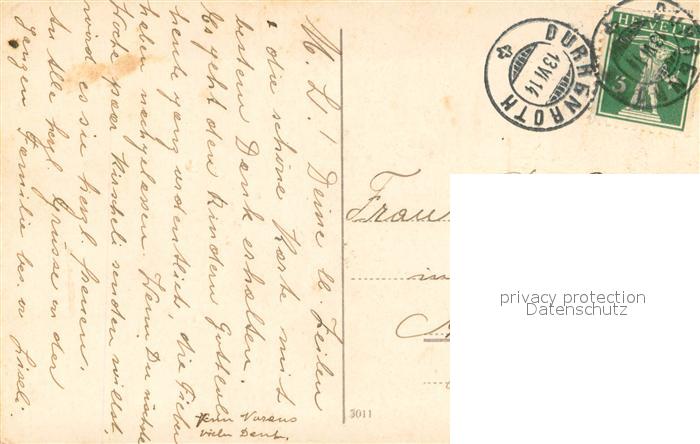 M. L! Deine lb. Zeilen
u. die schöne Karte mit
bestem Dank erhalten.
Es geht den Kindern Gottlob
heute ganz ordentlich, die Fieber
haben nachgelassen. Wenn Du nächste
Woche paar Kirscheli senden willst,
wird es sie herzl. freuen.
An Alle herzl. Grüsse v. der
ganzen Familie bes. v. Liseli.
Zum Voraus
vielen Dank.
Frau
in
3011
DÜRRENROTH
13 VI 14
HELVETIA
5
privacy protection
Datenschutz